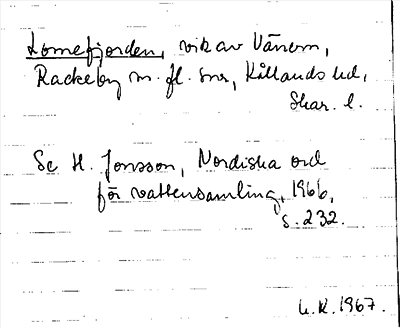 Lomefjorden, vik av Vänern,
Rackeby m. fl. snr, Kållands hd,
Skar. l.
Se H. Jonsson, Nordiska ord
för vattensamling, 1966,
s. 232.
U.K. 1967.